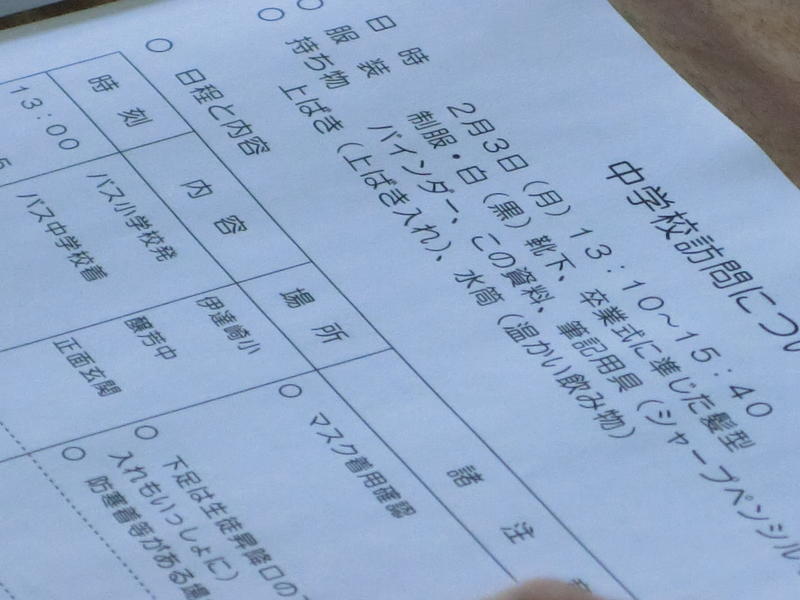 中学校訪問につい
日時 2月3日（月）13：10～15：40
服装 制服・白（黒）靴下、卒業式に準じた髪型
持ち物 バインダー、この資料、筆記用具（シャープペンシル
上ばき（上ばき入れ）、水筒（温かい飲み物）
○ 日程と内容
時刻 内容 場所 諸注
13：00 バス小学校発 伊達崎小 ○ マスク着用確認
バス中学校着 醸芳中 ○ 下足は生徒昇降口の
正面玄関 入れもいっしょに）
○ 防寒着等がある場